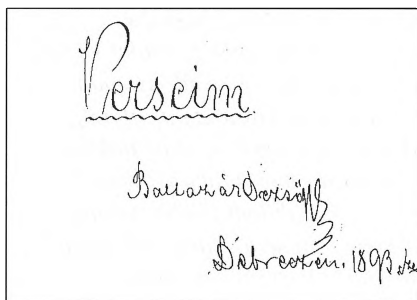 Verseim.
Baltazár Dezső
Debreczen. 1893.